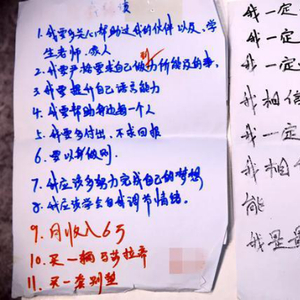 1.我要多关心帮助过我的伙伴以及学
生老师、亲人
2.我要严格要求自己
3.我要提升自己语言能力
4.我要帮助身边每一个人
5.我要多付出,不求回报
6.要以身做则
7.我应该多努力完成自己的梦想
8.我应该学会自我调节情绪。
9.月收入6万
10.买一辆玛莎拉蒂
11.买一套别墅
我一定
我一定
我一定
我相信
我一定
我相信
能
我是最